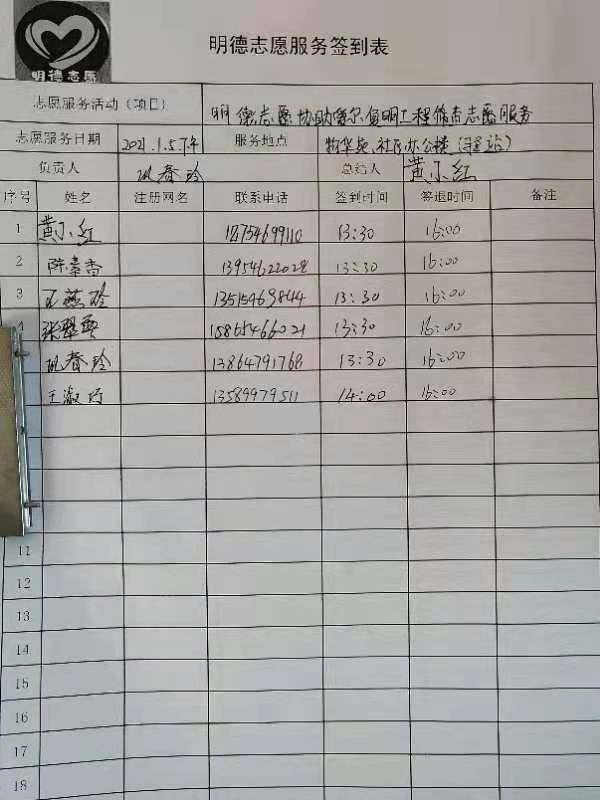 明德志愿
明德志愿服务签到表
志愿服务活动（项目） 明德志愿协助爱尔复明工程筛查志愿服务
志愿服务日期 2021.1.5.下午 服务地点 社区办公楼
负责人 巩春玲 总结人 黄小红
序号 姓名 注册网名 联系电话 签到时间 签退时间 备注
1 黄小红 18754699110 13:30 16:00
2 13954622028 13:30 16:00
3 王燕玲 13515469844 13:30 16:00
4 张翠 15865466021 13:30 16:00
巩春玲 13864791768 13:30 16:00
王淑 13589979511 14:00 16:00
11
12
13
14
15
16
17
18